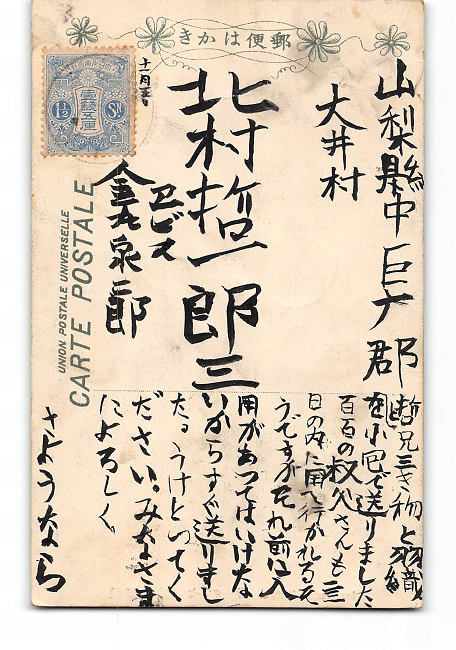 郵便はかき
UNION POSTALE UNIVERSELLE
CARTE POSTALE
1½ Sn
山梨縣中巨大郡
大井村
北村哲一郎三
十一月五
ヱビス
金泉二郎
哲兄三き物と羽織
を小包で送りました
百百の叔父さんも三
日の内に行かれるそ
うですがそれ前に入
用があつてはいけな
いからすぐ送りまし
た。うけとつてく
ださい。みなさま
によろしく、
さようなら